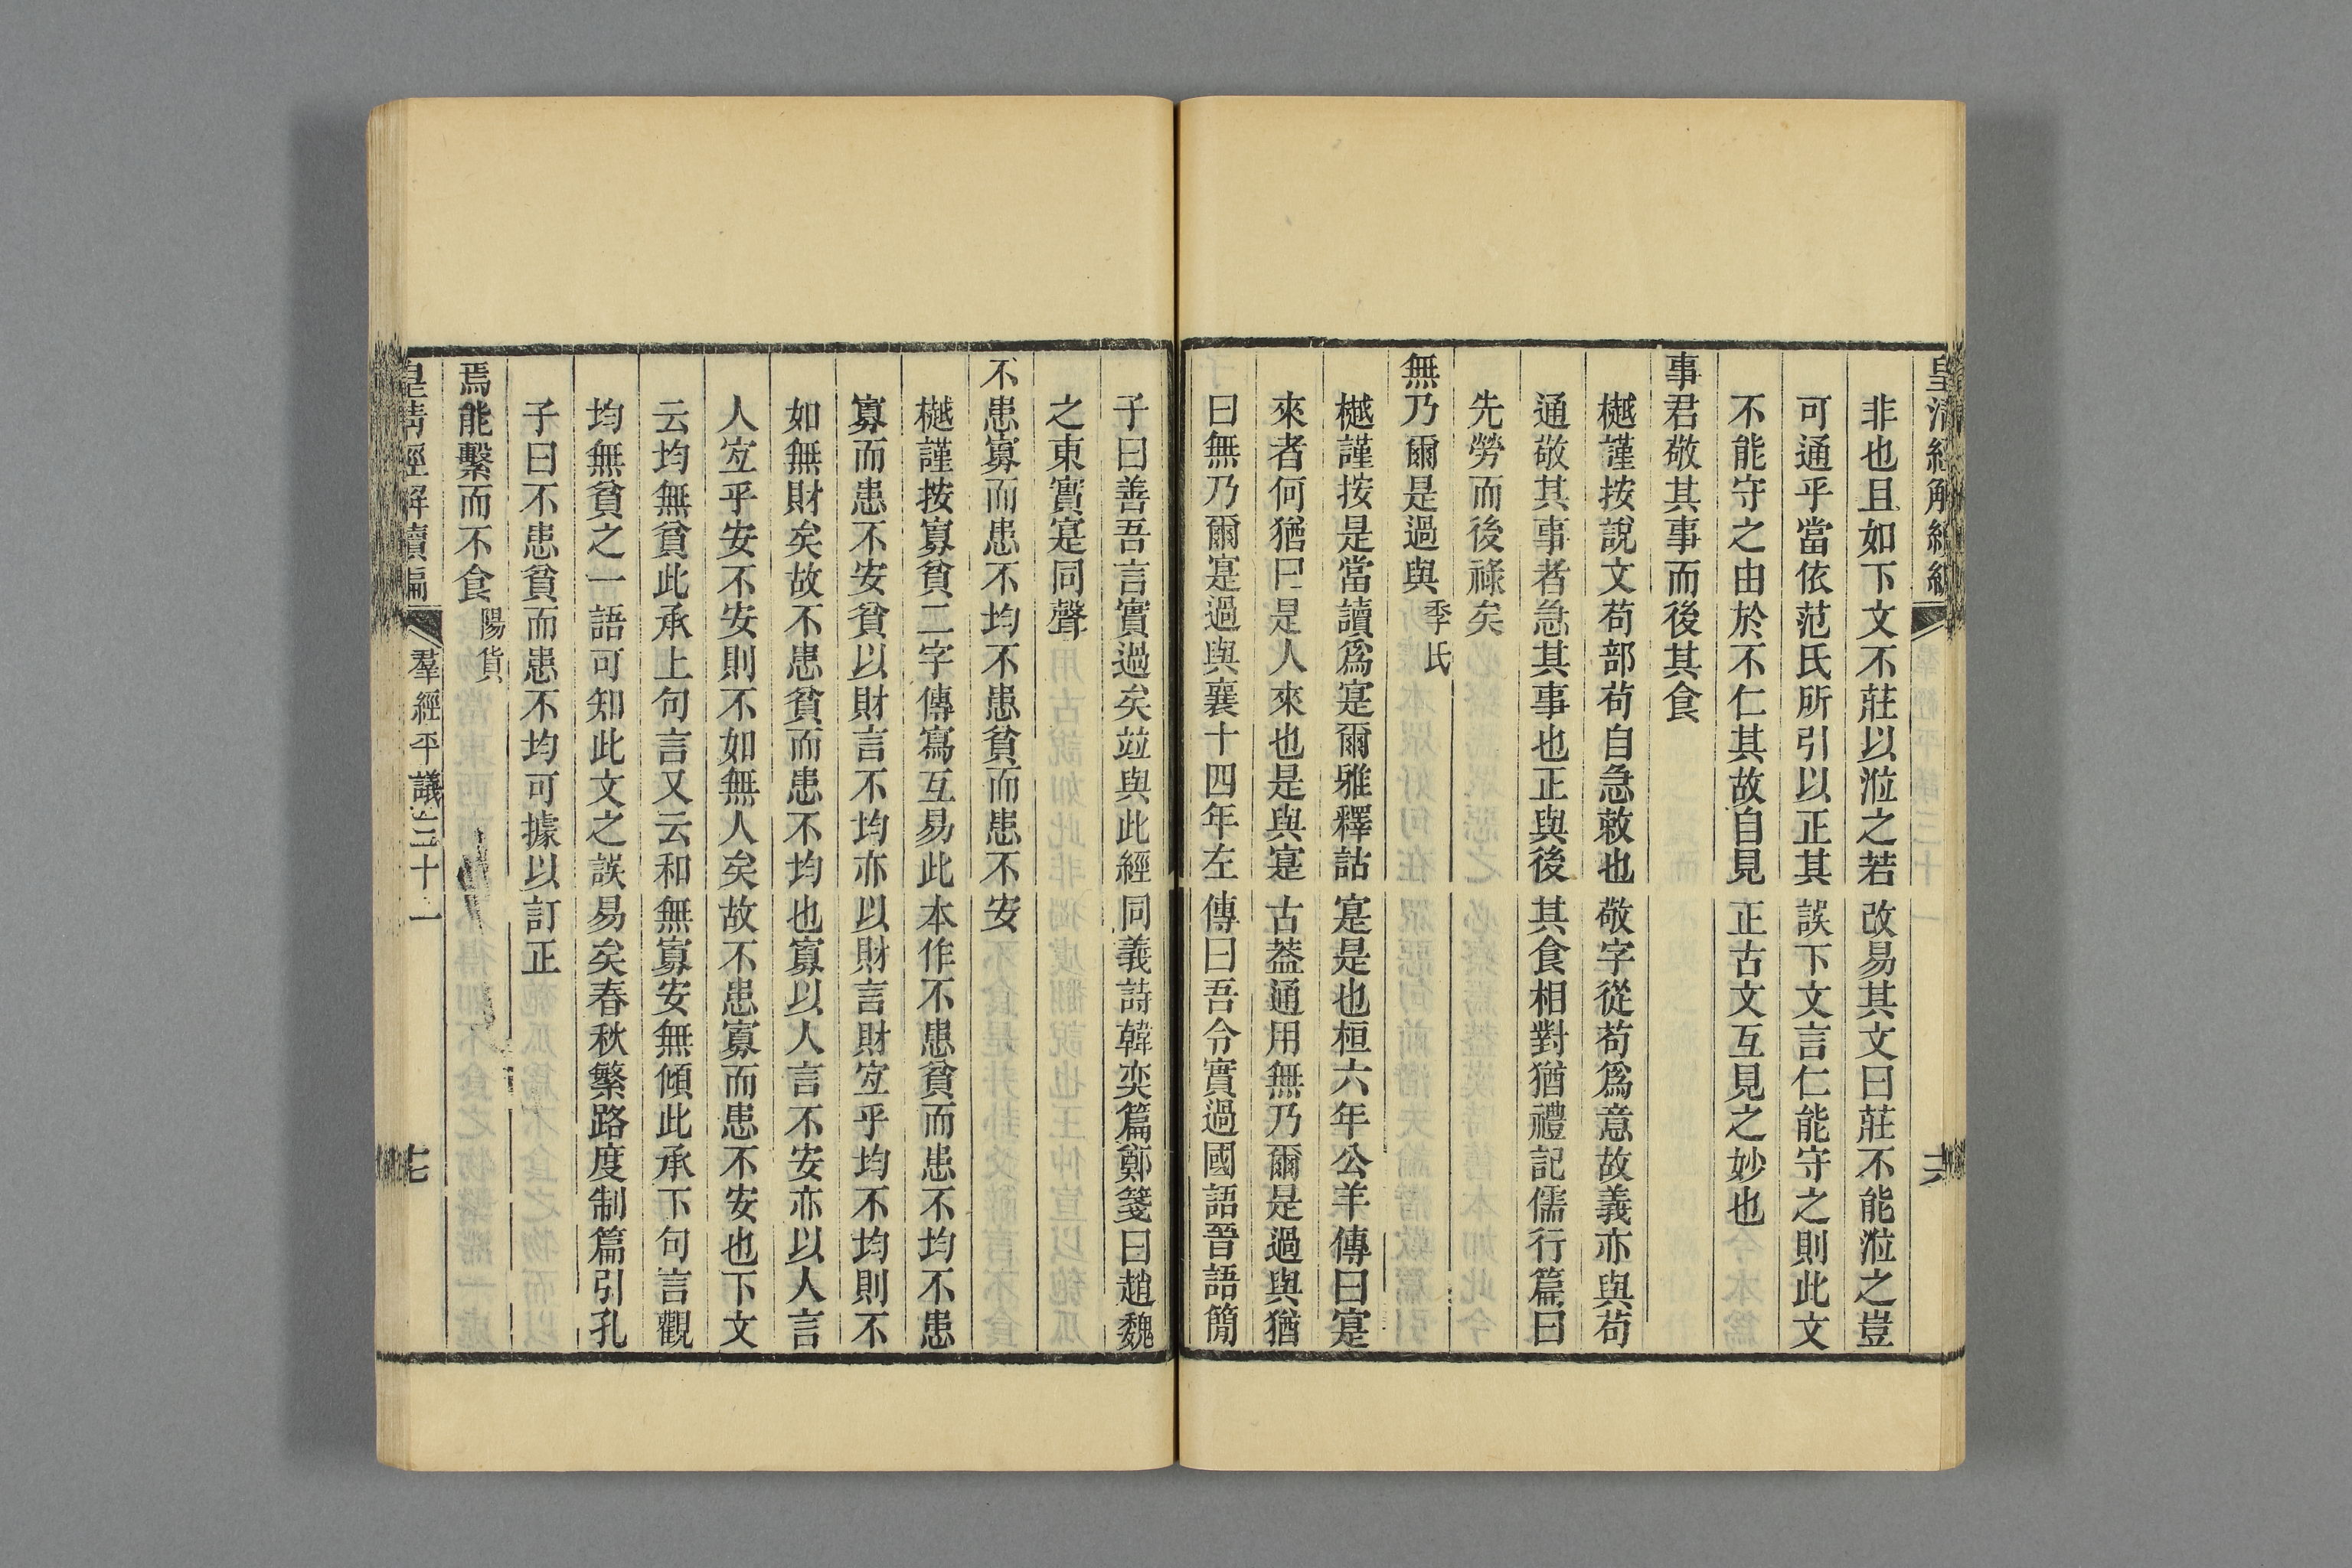 皇清經解續編
非也且如下文不莊以涖之若改易其文曰莊不能涖之豈
可通乎當依范氏所引以正其誤下文言仁能守之則此文
不能守之由於不仁其故自見正古文互見之妙也
事君敬其事而後其食
樾謹按說文茍部茍自急敕也敬字從茍爲意故義亦與茍
通敬其事者急其事也正與後其食相對猶禮記儒行篇曰
先勞而後祿矣
無乃爾是過與季氏
樾謹按是當讀爲寔爾雅釋詁寔是也桓六年公羊傳曰寔
來者何猶曰是人來也是與寔古葢通用無乃爾是過與猶
曰無乃爾寔過與襄十四年左傳曰吾令實過國語晉語簡
子曰善吾言實過矣竝與此經同義詩韓奕篇鄭箋曰趙魏
之東實寔同聲
不患寡而患不均不患貧而患不安
樾謹按寡貧二字傳寫互易此本作不患貧而患不均不患
寡而患不安貧以財言不均亦以財言財宐乎均不均則不
如無財矣故不患貧而患不均也寡以人言不安亦以人言
人宐乎安不安則不如無人矣故不患寡而患不安也下文
云均無貧此承上句言又云和無寡安無傾此承下句言觀
均無貧之一語可知此文之誤易矣春秋繁路度制篇引孔
子曰不患貧而患不均可據以訂正
焉能繫而不食陽貨
皇清經解續編 羣經平議三十一 十七